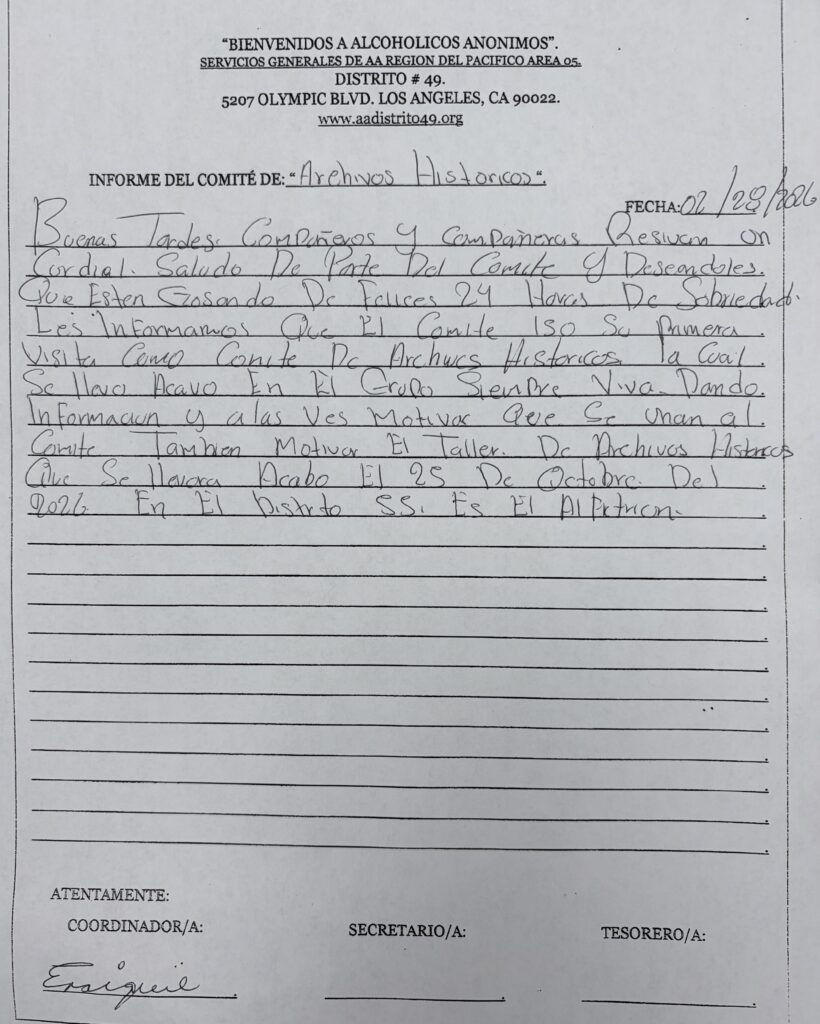 "BIENVENIDOS A ALCOHOLICOS ANONIMOS".
SERVICIOS GENERALES DE AA REGION DEL PACIFICO AREA 05.
DISTRITO # 49.
5207 OLYMPIC BLVD. LOS ANGELES, CA 90022.
www.aadistrito49.org
INFORME DEL COMITÉ DE: "Archivos Historicos".
FECHA: 02/28/2026
Buenas Tardes. Compañeros y Compañeras Resivan un
Cordial. Saludo De Parte Del Comite y Deseandoles.
Que Esten Gosando De Felices 24 Horas De Sobriedad.
Les Informamos Que El Comite Iso Su Primera.
Visita Como Comite De Archivos Historicos la Cual.
Se llevo Acavo En El Grupo Siempre Viva. Dando.
Informacion y a las Ves Motivar Que Se unan al.
Comite Tambien Motivar El Taller. De Archivos Historicos
Que Se llevara Acabo El 25 De Octubre. Del
2026 En El Distrito 55. Es El
ATENTAMENTE:
COORDINADOR/A:
SECRETARIO/A:
TESORERO/A: